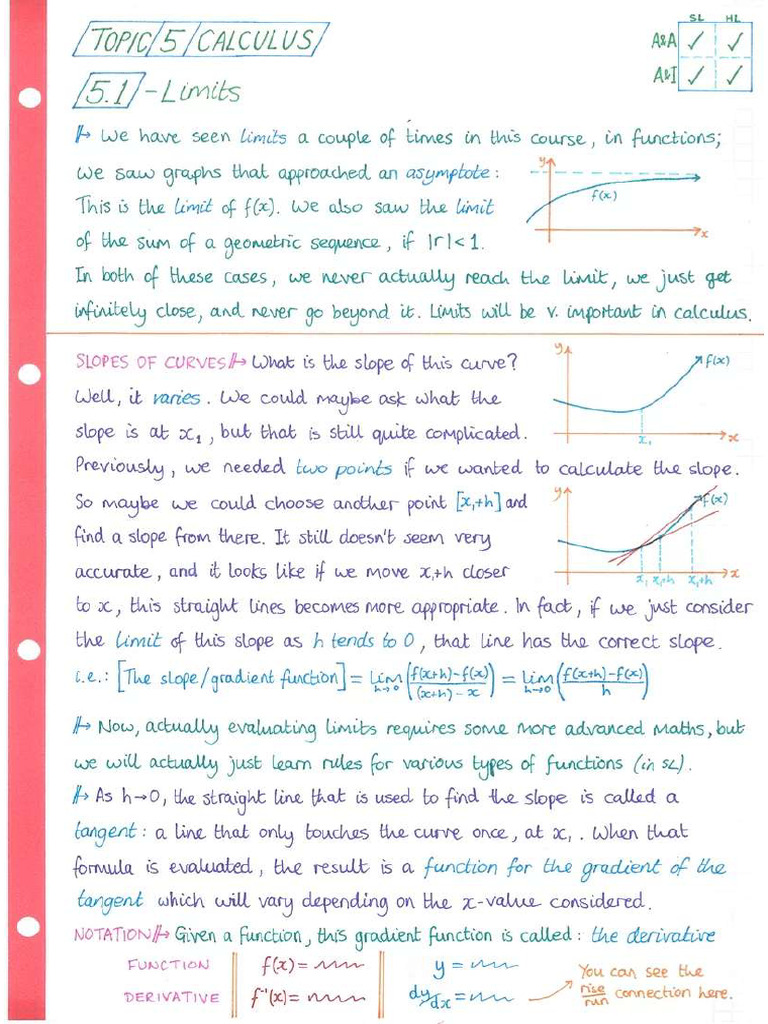 TOPIC/5/CALCULUS
SL HL
A&A ✓ ✓
A&I ✓ ✓
5.1 - Limits
We have seen limits a couple of times in this course, in functions;
we saw graphs that approached an asymptote:
This is the limit of f(x). We also saw the limit
of the sum of a geometric sequence, if |r|<1.
y
f(x)
x
In both of these cases, we never actually reach the limit, we just get
infinitely close, and never go beyond it. Limits will be v. important in calculus.
SLOPES OF CURVES What is the slope of this curve?
Well, it varies. We could maybe ask what the
slope is at x₁, but that is still quite complicated.
y
f(x)
x₁
x
Previously, we needed two points if we wanted to calculate the slope.
So maybe we could choose another point [x₁+h] and
find a slope from there. It still doesn't seem very
accurate, and it looks like if we move x₁+h closer
y
f(x)
x₁ x₁+h x₁+h x
to x, this straight lines becomes more appropriate. In fact, if we just consider
the limit of this slope as h tends to 0, that line has the correct slope.
i.e.: [The slope/gradient function] = lim h→0 (f(x+h)-f(x) / (x+h)-x) = lim h→0 (f(x+h)-f(x) / h)
Now, actually evaluating limits requires some more advanced maths, but
we will actually just learn rules for various types of functions (in SL).
As h→0, the straight line that is used to find the slope is called a
tangent: a line that only touches the curve once, at x₁. When that
formula is evaluated, the result is a function for the gradient of the
tangent which will vary depending on the x-value considered.
NOTATION Given a function, this gradient function is called: the derivative
FUNCTION f(x) = y =
DERIVATIVE f⁻¹(x) = dy/dx =
You can see the
rise/run connection here.